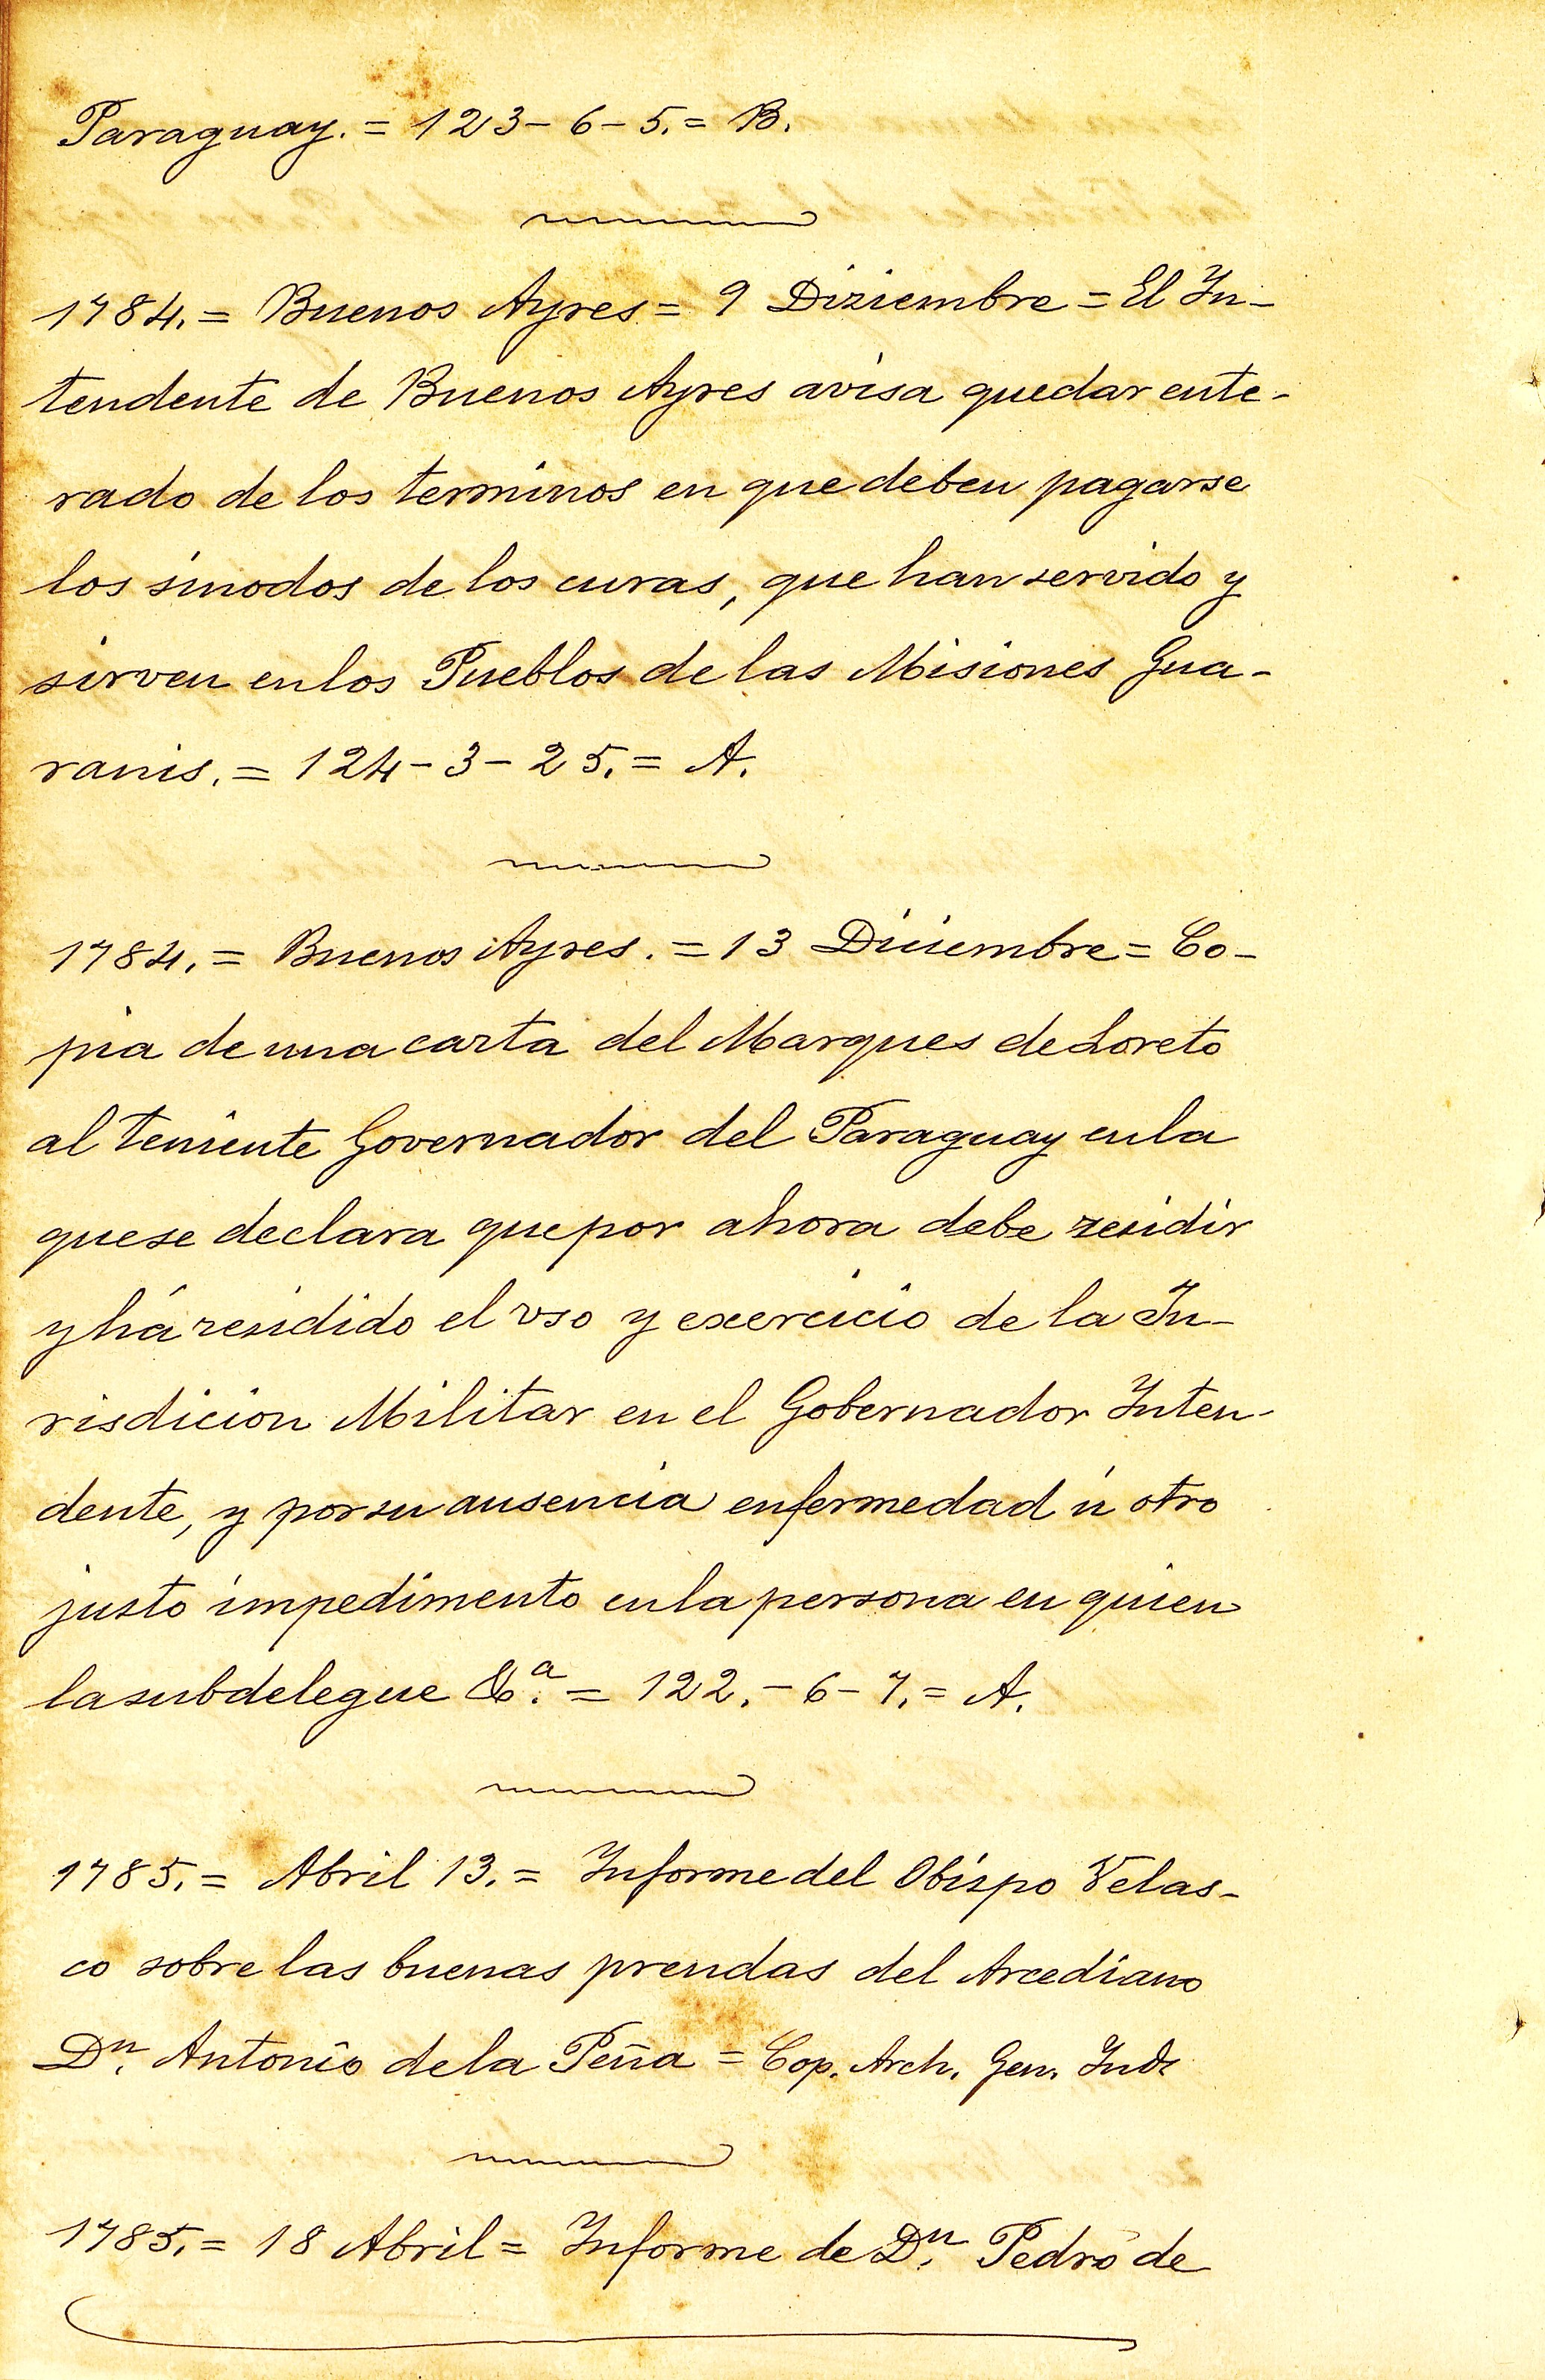 Paraguay. = 123 - 6 - 5. = B.
1784. = Buenos Ayres = 9 Diziembre = El In-
tendente de Buenos Ayres avisa quedar ente-
rado de los terminos en que deben pagarse
los sinodos de los curas, que han servido y
sirven en los Pueblos de las Misiones Gua-
ranis. = 124 - 3 - 25. = A.
1784. = Buenos Ayres. = 13 Diciembre = Co-
pia de una carta del Marques de Loreto
al teniente Governador del Paraguay en la
que se declara que por ahora debe residir
y há residido el vso y exercicio de la Ju-
risdicion Militar en el Gobernador Inten-
dente, y por su ausencia enfermedad ú otro
justo impedimento en la persona en quien
la subdelegue &.ª = 122. - 6 - 7. = A.
1785. = Abril 13. = Informe del Obispo Velas-
co sobre las buenas prendas del Arcediano
Dⁿ. Antonio de la Peña = Cop. Arch. Gen. Inds
1785. = 18 Abril = Informe de Dⁿ. Pedro de